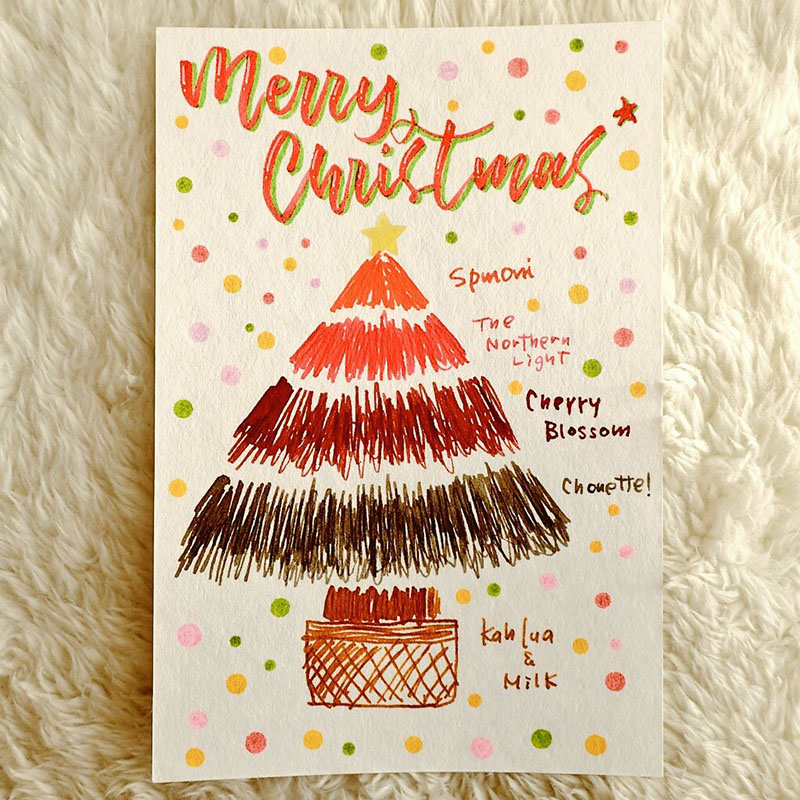 Merry
Christmas
Spmoni
The
Northern
Light
Cherry
Blossom
Chouette!
Kahlua
&
Milk